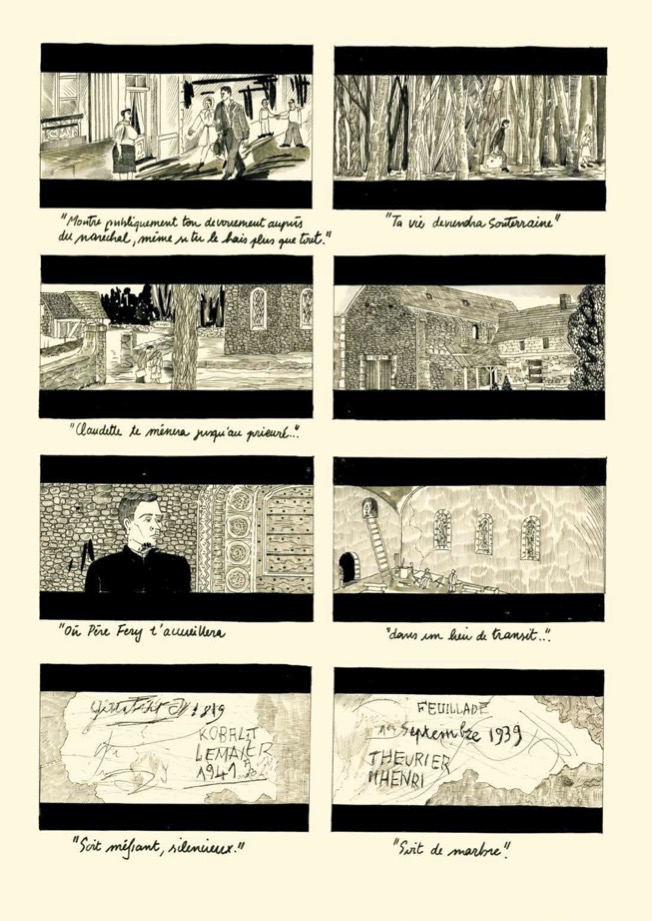 "Montre publiquement ton dévouement auprès
du maréchal, même si tu le hais plus que tout."
"Ta vie deviendra souterraine"
"Claudette te mènera jusqu'au prieuré..."
"Où Père Fery t'accueillera
"dans un lieu de transit..."
1849
KOBALT
LEMAYER
1941
FEUILLADE
Septembre 1939
THEURIER
HHENRI
"Soit méfiant, silencieux."
"Soit de marbre".